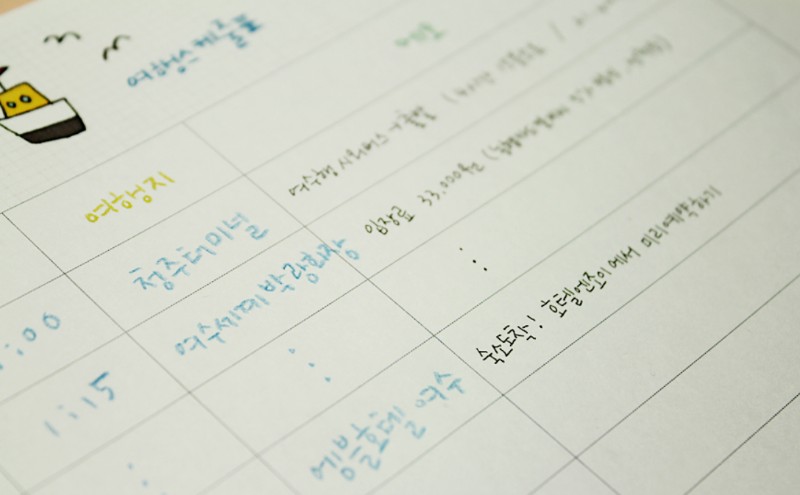 여행스케줄
메모
여행지
:00 청주터미널 여수행 시외버스 → 출발
1:15 여수세계박람회장 입장료 33,000원
: : :
예쁜호텔 여수 숙소도착! 호텔엔조이에서 미리예약하기